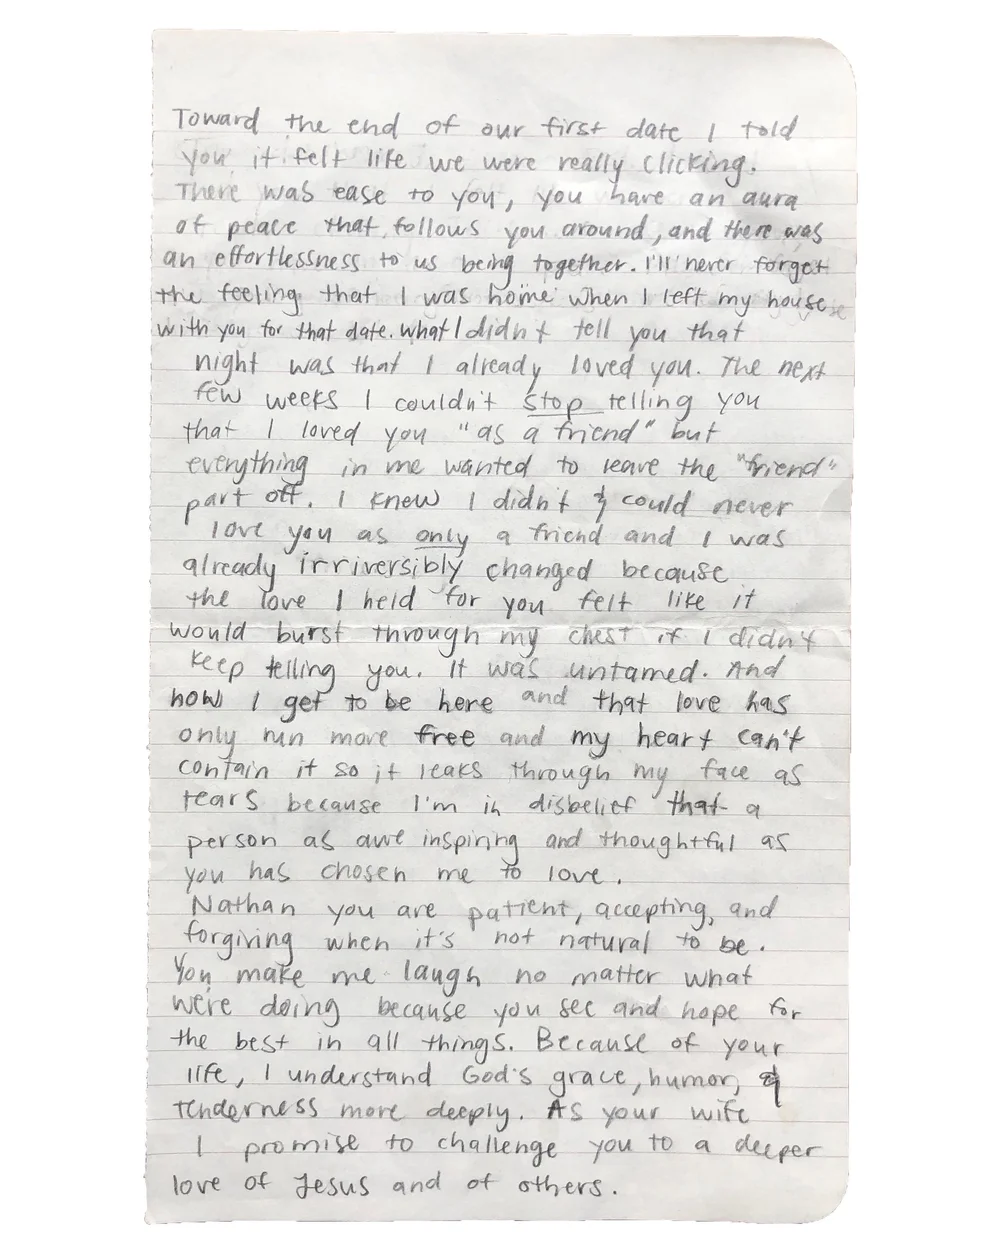 Toward the end of our first date I told
you it felt life we were really clicking.
There was ease to you, you have an aura
of peace that follows you around, and there was
an effortlessness to us being together. I'll never forget
the feeling that I was home when I left my house
with you for that date. What I didn't tell you that
night was that I already loved you. The next
few weeks I couldn't stop telling you
that I loved you "as a friend" but
everything in me wanted to leave the "friend"
part off. I knew I didn't & could never
love you as only a friend and I was
already irriversibly changed because
the love I held for you felt like it
would burst through my chest if I didn't
keep telling you. It was untamed. And
now I get to be here and that love has
only run more free and my heart can't
contain it so it leaks through my face as
tears because I'm in disbelief that a
person as awe inspiring and thoughtful as
you has chosen me to love.
Nathan you are patient, accepting, and
forgiving when it's not natural to be.
You make me laugh no matter what
we're doing because you see and hope for
the best in all things. Because of your
life, I understand God's grace, humor, &
tenderness more deeply. As your wife
I promise to challenge you to a deeper
love of Jesus and of others.